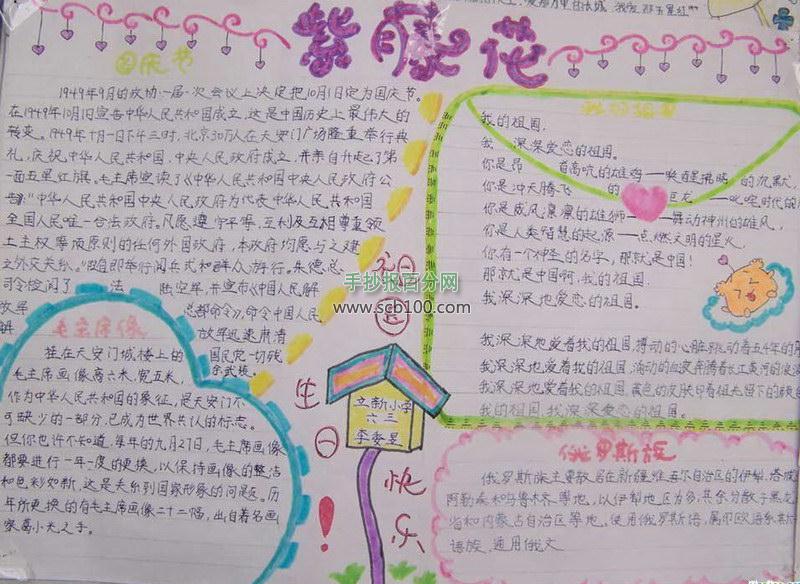 紫藤花
国庆节
1949年9月的政协一届一次会议上决定把10月1日定为国庆节。
在1949年10月1日宣告中华人民共和国成立,这是中国历史上最伟大的
转变。1949年十月一日下午三时,北京30万人在天安门广场隆重举行典
礼,庆祝中华人民共和国,中央人民政府成立,并亲自升起了第
一面五星红旗。毛主席宣读了《中华人民共和国中央人民政府公
告》:"中华人民共和国中央人民政府为代表中华人民共和国
全国人民唯一合法政府。凡愿遵守平等,互利及互相尊重领
土主权等项原则的任何外国政府,本政府均愿与之建
立外交关系。"随即举行阅兵式和群众游行。朱德总
司令检阅了 法 陆空军,并宣布《中国人民解
放军 总部命令》,命令中国人民
解 放军迅速肃清
国民党一切残
余武装。
毛主席像
挂在天安门城楼上的
毛主席画像高六米,宽五米,
作为中华人民共和国的象征,是天安门不
可缺少的一部分,已成为世界共认的标志。
但你也许不知道,每年的九月27日,毛主席画像
都要进行一年一度的更换,以保持画像的整洁
和色彩如新,这是关系到国家形象的问题。历
年所更换的有毛主席画像二十二幅,出自着名画
家葛小天之手。
祖国
生日快乐!
立新小学
六三
手抄报百分网
www.scb100.com
我的祖国,
我 深深爱恋的祖国。
你是昂 首高吭的雄鸡——唤醒拂晓的沉默,
你是冲天腾飞 的 巨龙——叱咤时代的
你是威风凛凛的雄狮——舞动神州的雄风,
你是人类智慧的起源——点燃文明的星火,
你有一个神圣的名字,那就是中国!
那就是中国啊,我的祖国。
我深深地爱恋的祖国。
我深深地爱着我的祖国,搏动的心脏跳动着五千年的
我深深地爱着我的祖国,涌动的血液奔腾着长江黄河的
我深深地爱着我的祖国,黄色的皮肤印着祖先留下的
我的祖国,我深深爱恋的祖国。
俄罗斯族
俄罗斯族主要散居在新疆维吾尔自治区的伊犁、塔城、
阿勒泰和乌鲁木齐等地,以伊犁地区为多,其余分散于黑龙
省和内蒙古自治区等地。使用俄罗斯语,属印欧语系斯
语族,通用俄文